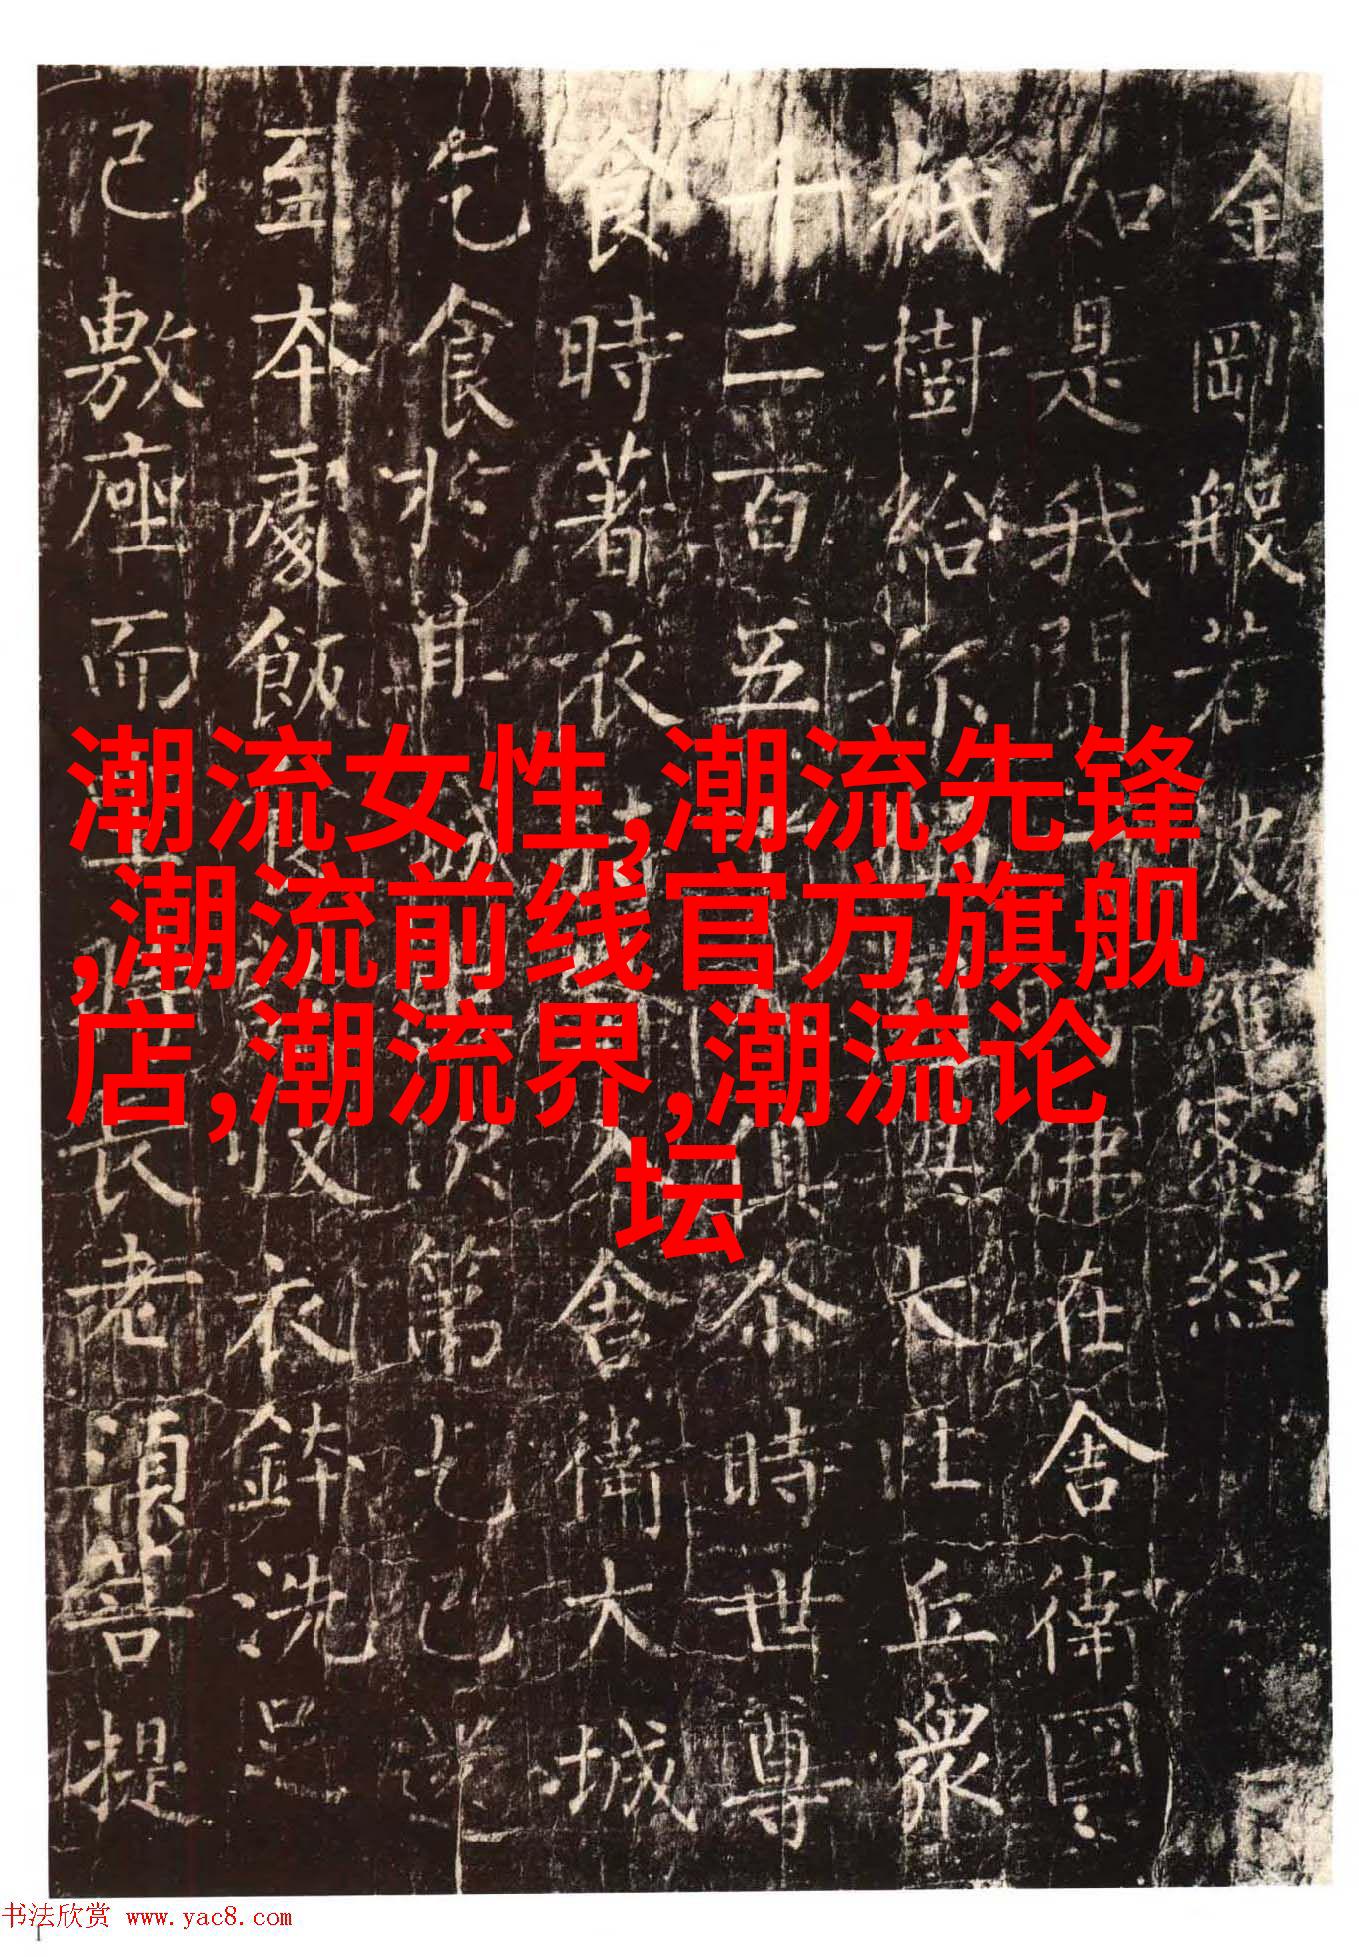 金剛般若波羅蜜經
如是我聞一時佛在舍衛國
祇樹給孤大比丘衆
千二百五俱尒時世尊
食時著衣持入舍衛大城
乞食於其城次第乞已還
至本處飯食收衣鉢洗足
已敷座而時長老須菩提
潮流女性,潮流先锋
,潮流前线官方旗舰
店,潮流界,潮流论
坛
书法欣赏 www.yac8.com